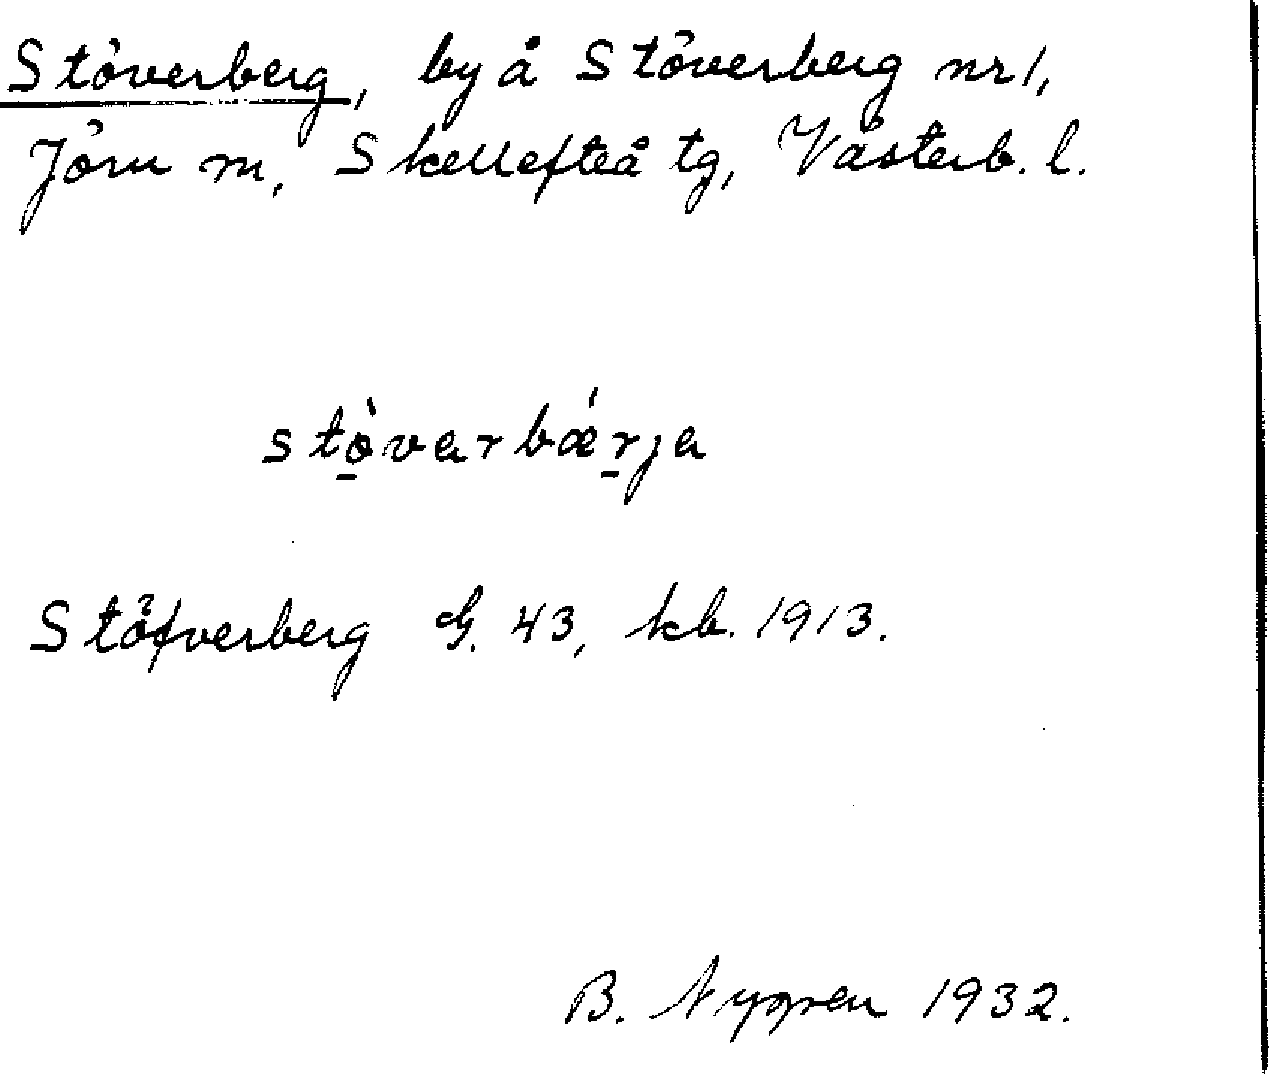 Stöverberg, by å Stöverberg nr 1,
Jörn m, Skellefteå tg, Västerb. l.
stò̱varbǽṟja
Stöfverberg G. 43, kb. 1913.
B. Nygren 1932.